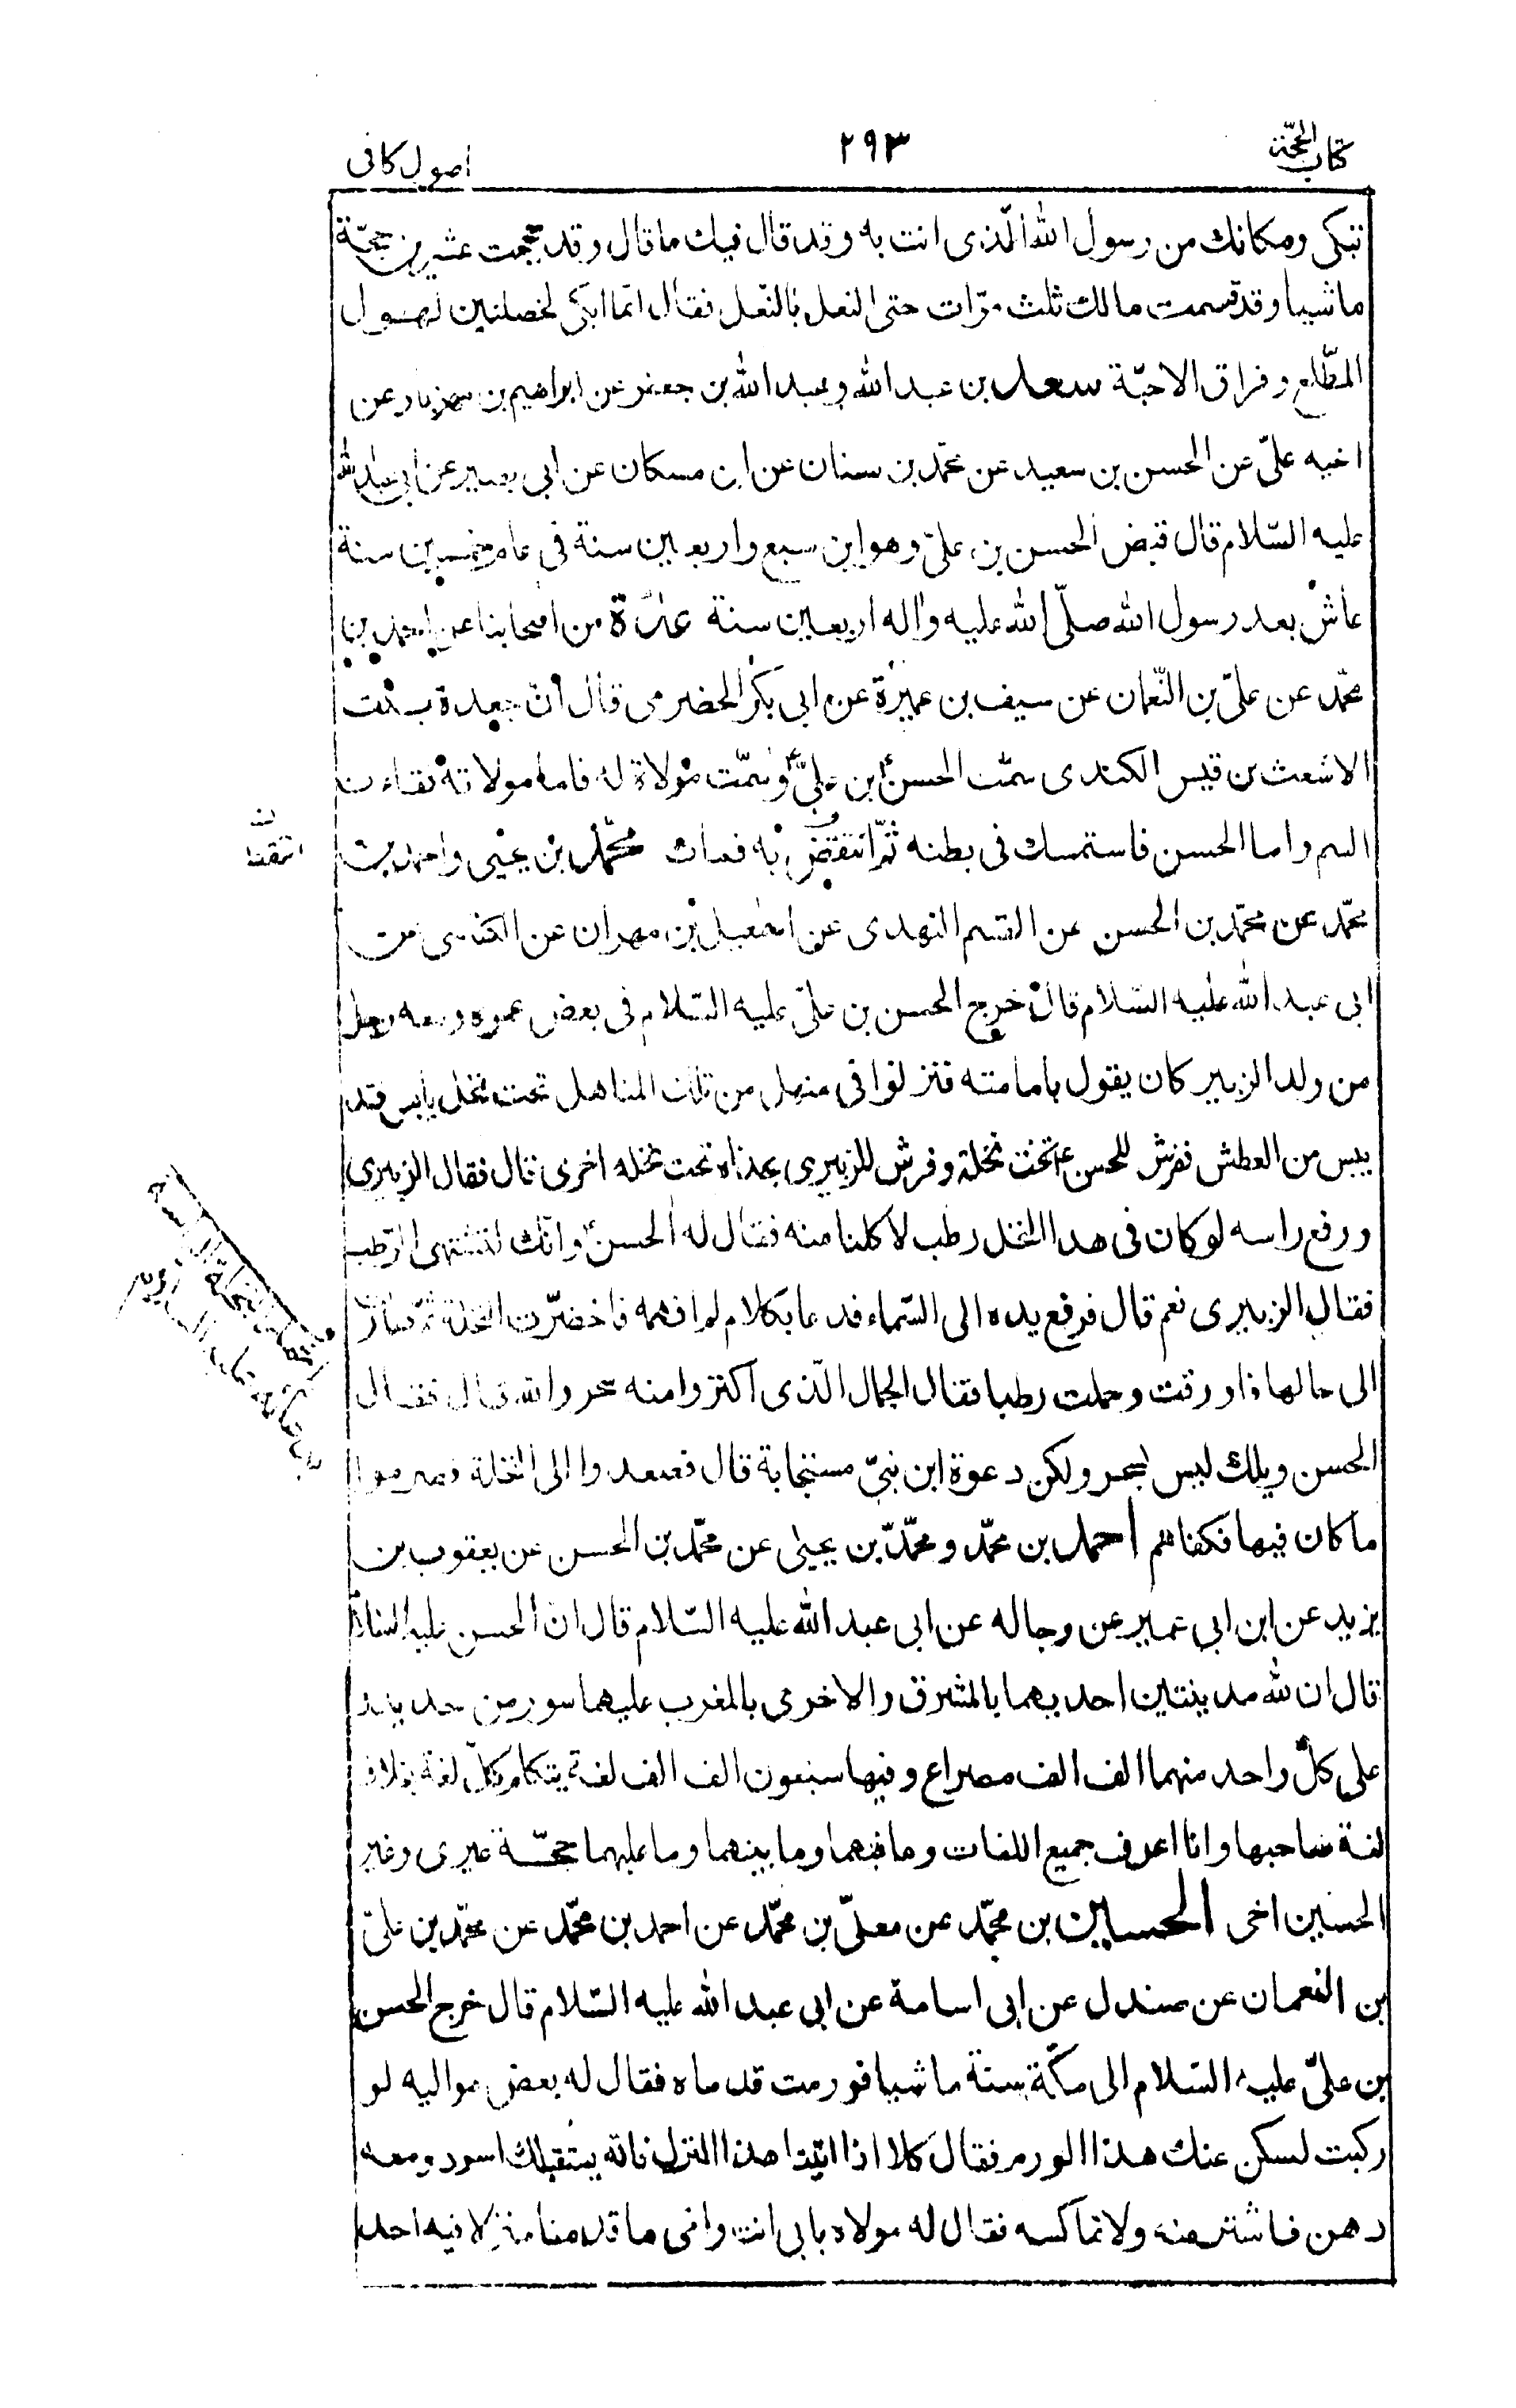 كتاب الحجّة
٢٩٣
اصول كافى
تبكى ومكانك من رسول الله الّذى انت به وقد قال فيك ما قال وقد حججت عشرين حجّة
ماشيا وقد قسمت مالك ثلث مرّات حتى النعل بالنّعل فقال انما ابكى لخصلتين لهول
المطّلع وفراق الاحبّة سعد بن عبد الله وعبد الله بن جعفر عن ابراهيم بن مهزيار عن
اخيه علىّ عن الحسن بن سعيد عن محمّد بن سنان عن ابن مسكان عن ابى بصير عن ابى عبد الله
عليه السّلام قال قبض الحسن بن علىّ وهو ابن سبع واربعين سنة فى عام خمسين سنة
عاش بعد رسول الله صلّى الله عليه واله اربعين سنة عدّة من اصحابنا عن احمد بن
محمّد عن علىّ بن النّعمان عن سيف بن عميرة عن ابى بكر الحضرمى قال انّ جعدة بنت
الاشعث بن قيس الكندى سمّت الحسن بن علىّ وسمّت مولاة له فاما مولاته فقاءت
السم واما الحسن فاستمسك فى بطنه ثمّ انتقض به فمات محمّد بن يحيى واحمد بن
محمّد عن محمّد بن الحسن عن القسم النهدى عن اسمعيل بن مهران عن الكناسى عن
ابى عبد الله عليه السّلام قال خرج الحسن بن علىّ عليه السّلام فى بعض عمره ومعه رجل
من ولد الزبير كان يقول بامامته فنزلوا فى منهل من تلك المناهل تحت نخل يابس قد
يبس من العطش ففرش للحسن ع تحت نخلة وفرش للزبيرى بحذاه تحت نخله اخرى قال فقال الزبيرى
ورفع راسه لو كان فى هذا النخل رطب لاكلنا منه فقال له الحسن وانّك لتشتهى الرّطب
فقال الزبيرى نعم قال فرفع يده الى السّماء فدعا بكلام لم افهمه فاخضرّت النخلة ثمّ صارت
الى حالها فاورقت وحملت رطبا فقال الجمال الّذى اكتروا منه سحر والله قال فقال
الحسن ويلك ليس بسحر ولكن دعوة ابن نبىّ مستجابة قال فصعدوا الى النخلة فصرموا
ما كان فيها فكفاهم احمد بن محمّد ومحمّد بن يحيى عن محمّد بن الحسن عن يعقوب بن
يزيد عن ابن ابى عمير عن رجاله عن ابى عبد الله عليه السّلام قال ان الحسن عليه السّلام
قال ان لله مدينتين احديهما بالمشرق والاخرى بالمغرب عليهما سور من حديد
على كلّ واحد منهما الف الف مصراع وفيها سبعون الف الف لغة يتكلم كلّ لغة بخلاف
لغة صاحبها وانا اعرف جميع اللغات وما فيهما وما بينهما وما عليهما حجّة غيرى وغير
الحسين اخى الحسين بن محمّد عن معلّى بن محمّد عن احمد بن محمّد عن محمّد بن علىّ
بن النعمان عن صندل عن ابى اسامة عن ابى عبد الله عليه السّلام قال خرج الحسن
بن علىّ عليه السّلام الى مكّة سنة ماشيا فورمت قدماه فقال له بعض مواليه لو
ركبت لسكن عنك هذا الورم فقال كلا اذا اتينا هذا المنزل فانه يستقبلك اسود ومعه
دهن فاشتر منه ولا تماكسه فقال له مولاه بابى انت وامى ما قدمنا منزلا فيه احد